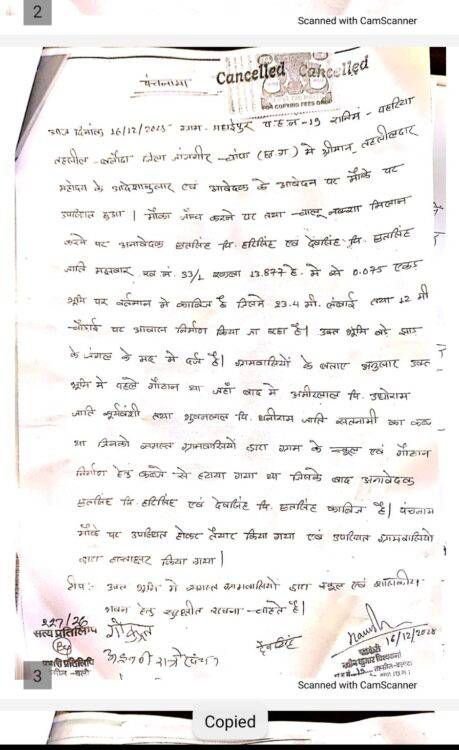 2
Scanned with CamScanner
पंचनामा
Cancelled Cancelled
FOR COPYING FEES ONLY
आज दिनांक 16/12/2025 ग्राम - महाईपुर प.ह.न.-19 रानिमं - पहरिया
तहसील - बलौदा जिला जांजगीर - चांपा (छ.ग.) में श्रीमान् तहसीलदार
महोदय के आदेशानुसार एवं आवेदक के आवेदन पर मौके पर
उपस्थित हुआ। मौका जाँच करने पर तथा चालू नक्शा मिलान
करने पर अनावेदक छतसिंह पि. हरिसिंह एवं देवसिंह पि. छतसिंह
जाति मझवार ख.नं. 33/1 रकबा 13.877 हे. में से 0.075 एकड़
भूमि पर वर्तमान में काबिज है जिसमें 23.4 मी. लंबाई तथा 12 मी
चौड़ाई पर आवास निर्माण किया जा रहा है। उक्त भूमि बड़े झाड़
के जंगल के मद में दर्ज है। ग्रामवासियों के बताए अनुसार उक्त
भूमि में पहले गौठान था जहाँ बाद में अमीरलाल पि. उधोराम
जाति सूर्यवंशी तथा भुवनलाल पि. धनीराम जाति सतनामी का कब्जा
था जिनको समस्त ग्रामवासियों द्वारा ग्राम के स्कूल एवं गौठान
निर्माण हेतु कब्जे से हटाया गया था जिसके बाद अनावेदक
छतसिंह पि. हरिसिंह एवं देवसिंह पि. छतसिंह काबिज है। पंचनामा
मौके पर उपस्थित होकर तैयार किया गया एवं उपस्थित ग्रामवासियो
द्वारा हस्ताक्षर किया गया।
टीप:- उक्त भूमि में समस्त ग्रामवासियों द्वारा स्कूल एवं शासकीय
भवन हेतु सुरक्षित रखना चाहते है।
227/26
सत्य प्रतिलिपि
गोकुल
देवसिंह
16/12/2025
पटवारी
3
Scanned with CamScanner
Copied